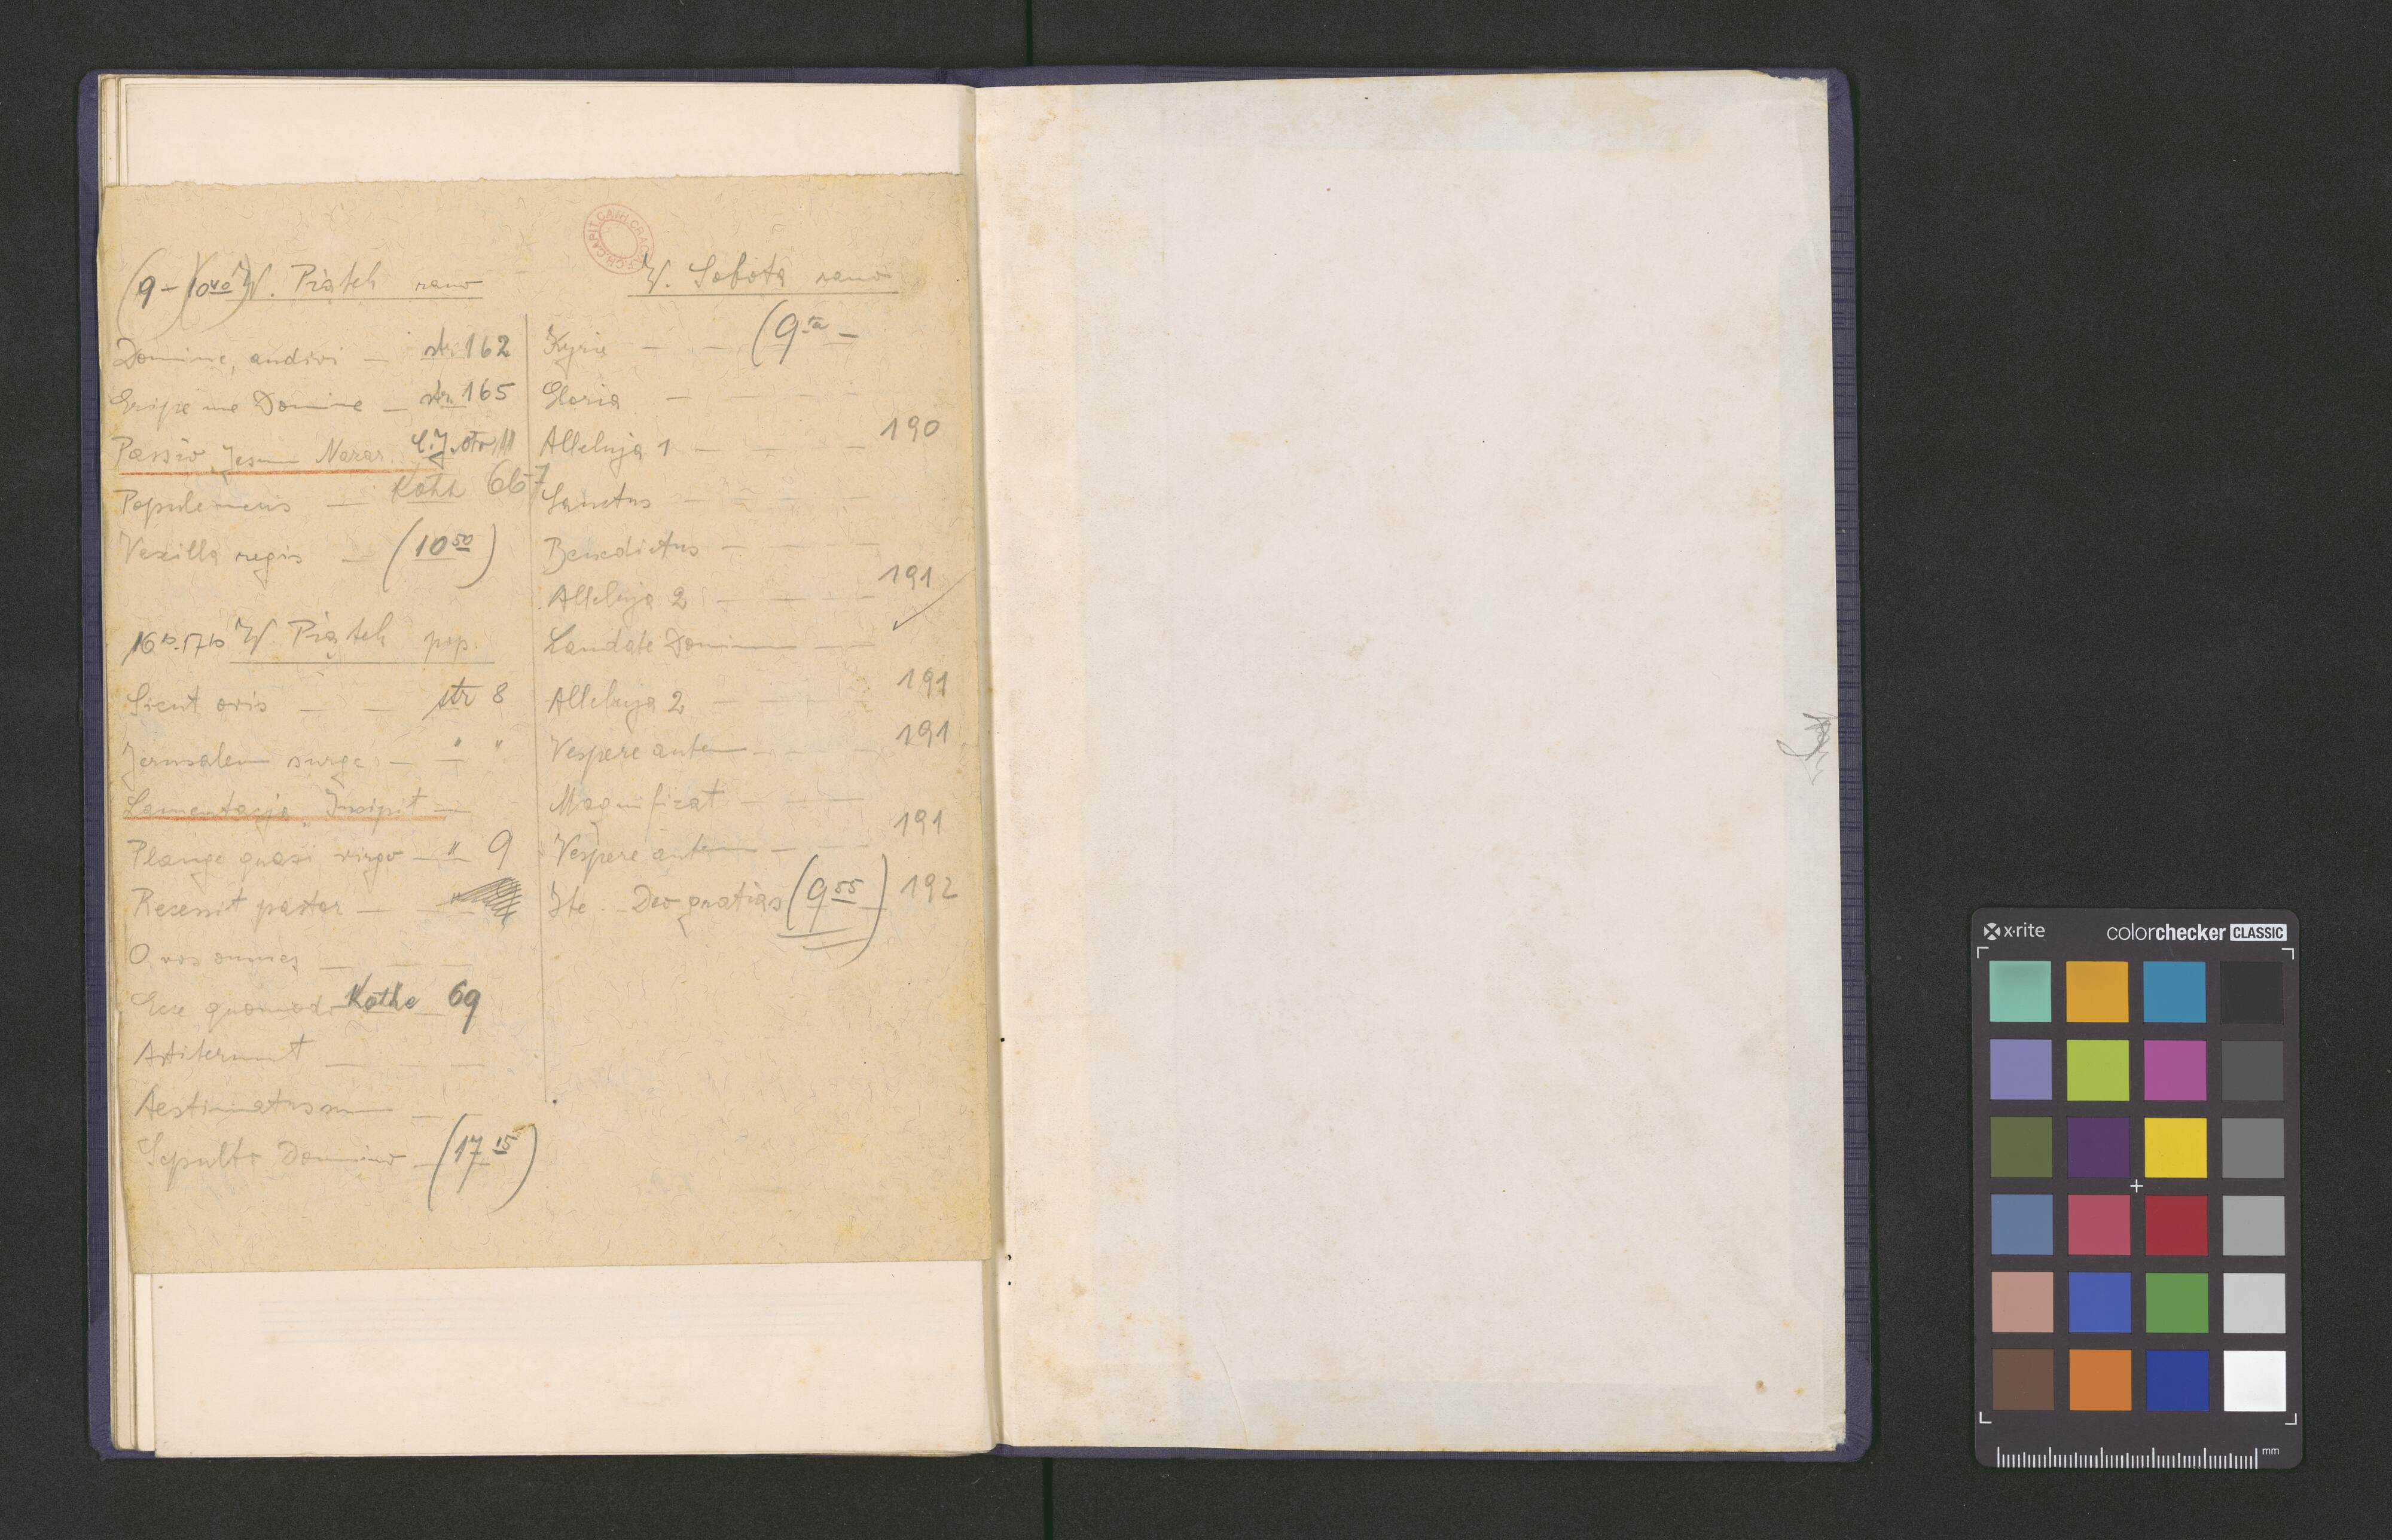 (9 - 10⁴⁰) W. Piątek rano
Domine, audivi — str. 162
Eripe me Domine — str. 165
Passio „Jesum Nazar.
Popule meus — Kothe 66-7
Vexilla regis — (10⁵⁰)
W. Piątek pop.
Sicut ovis — — str 8
Jerusalem surge — — " "
Lamentacja „Incipit —
Plange quasi virgo — " 9
Recessit pastor — — "
O vos omnes — — —
Ecce quomodo Kothe 69
Astiterunt — — —
Aestimatus sum — —
Sepulto Domino — (17¹⁵)
W. Sobota rano
Kyrie — — (9ᵗᵃ —
Gloria — — — —
Alleluja 1 — — — 190
Sanctus — — — —
Benedictus — — — —
Alleluja 2 — — — 191
Laudate Dominum — —
Alleluja 2 — — — 191
Vespere autem — — — 191
Magnificat — — —
Vespere autem — — 191
Ite. — Deo gratias (9⁵⁵) 192
x·rite
colorchecker CLASSIC
mm